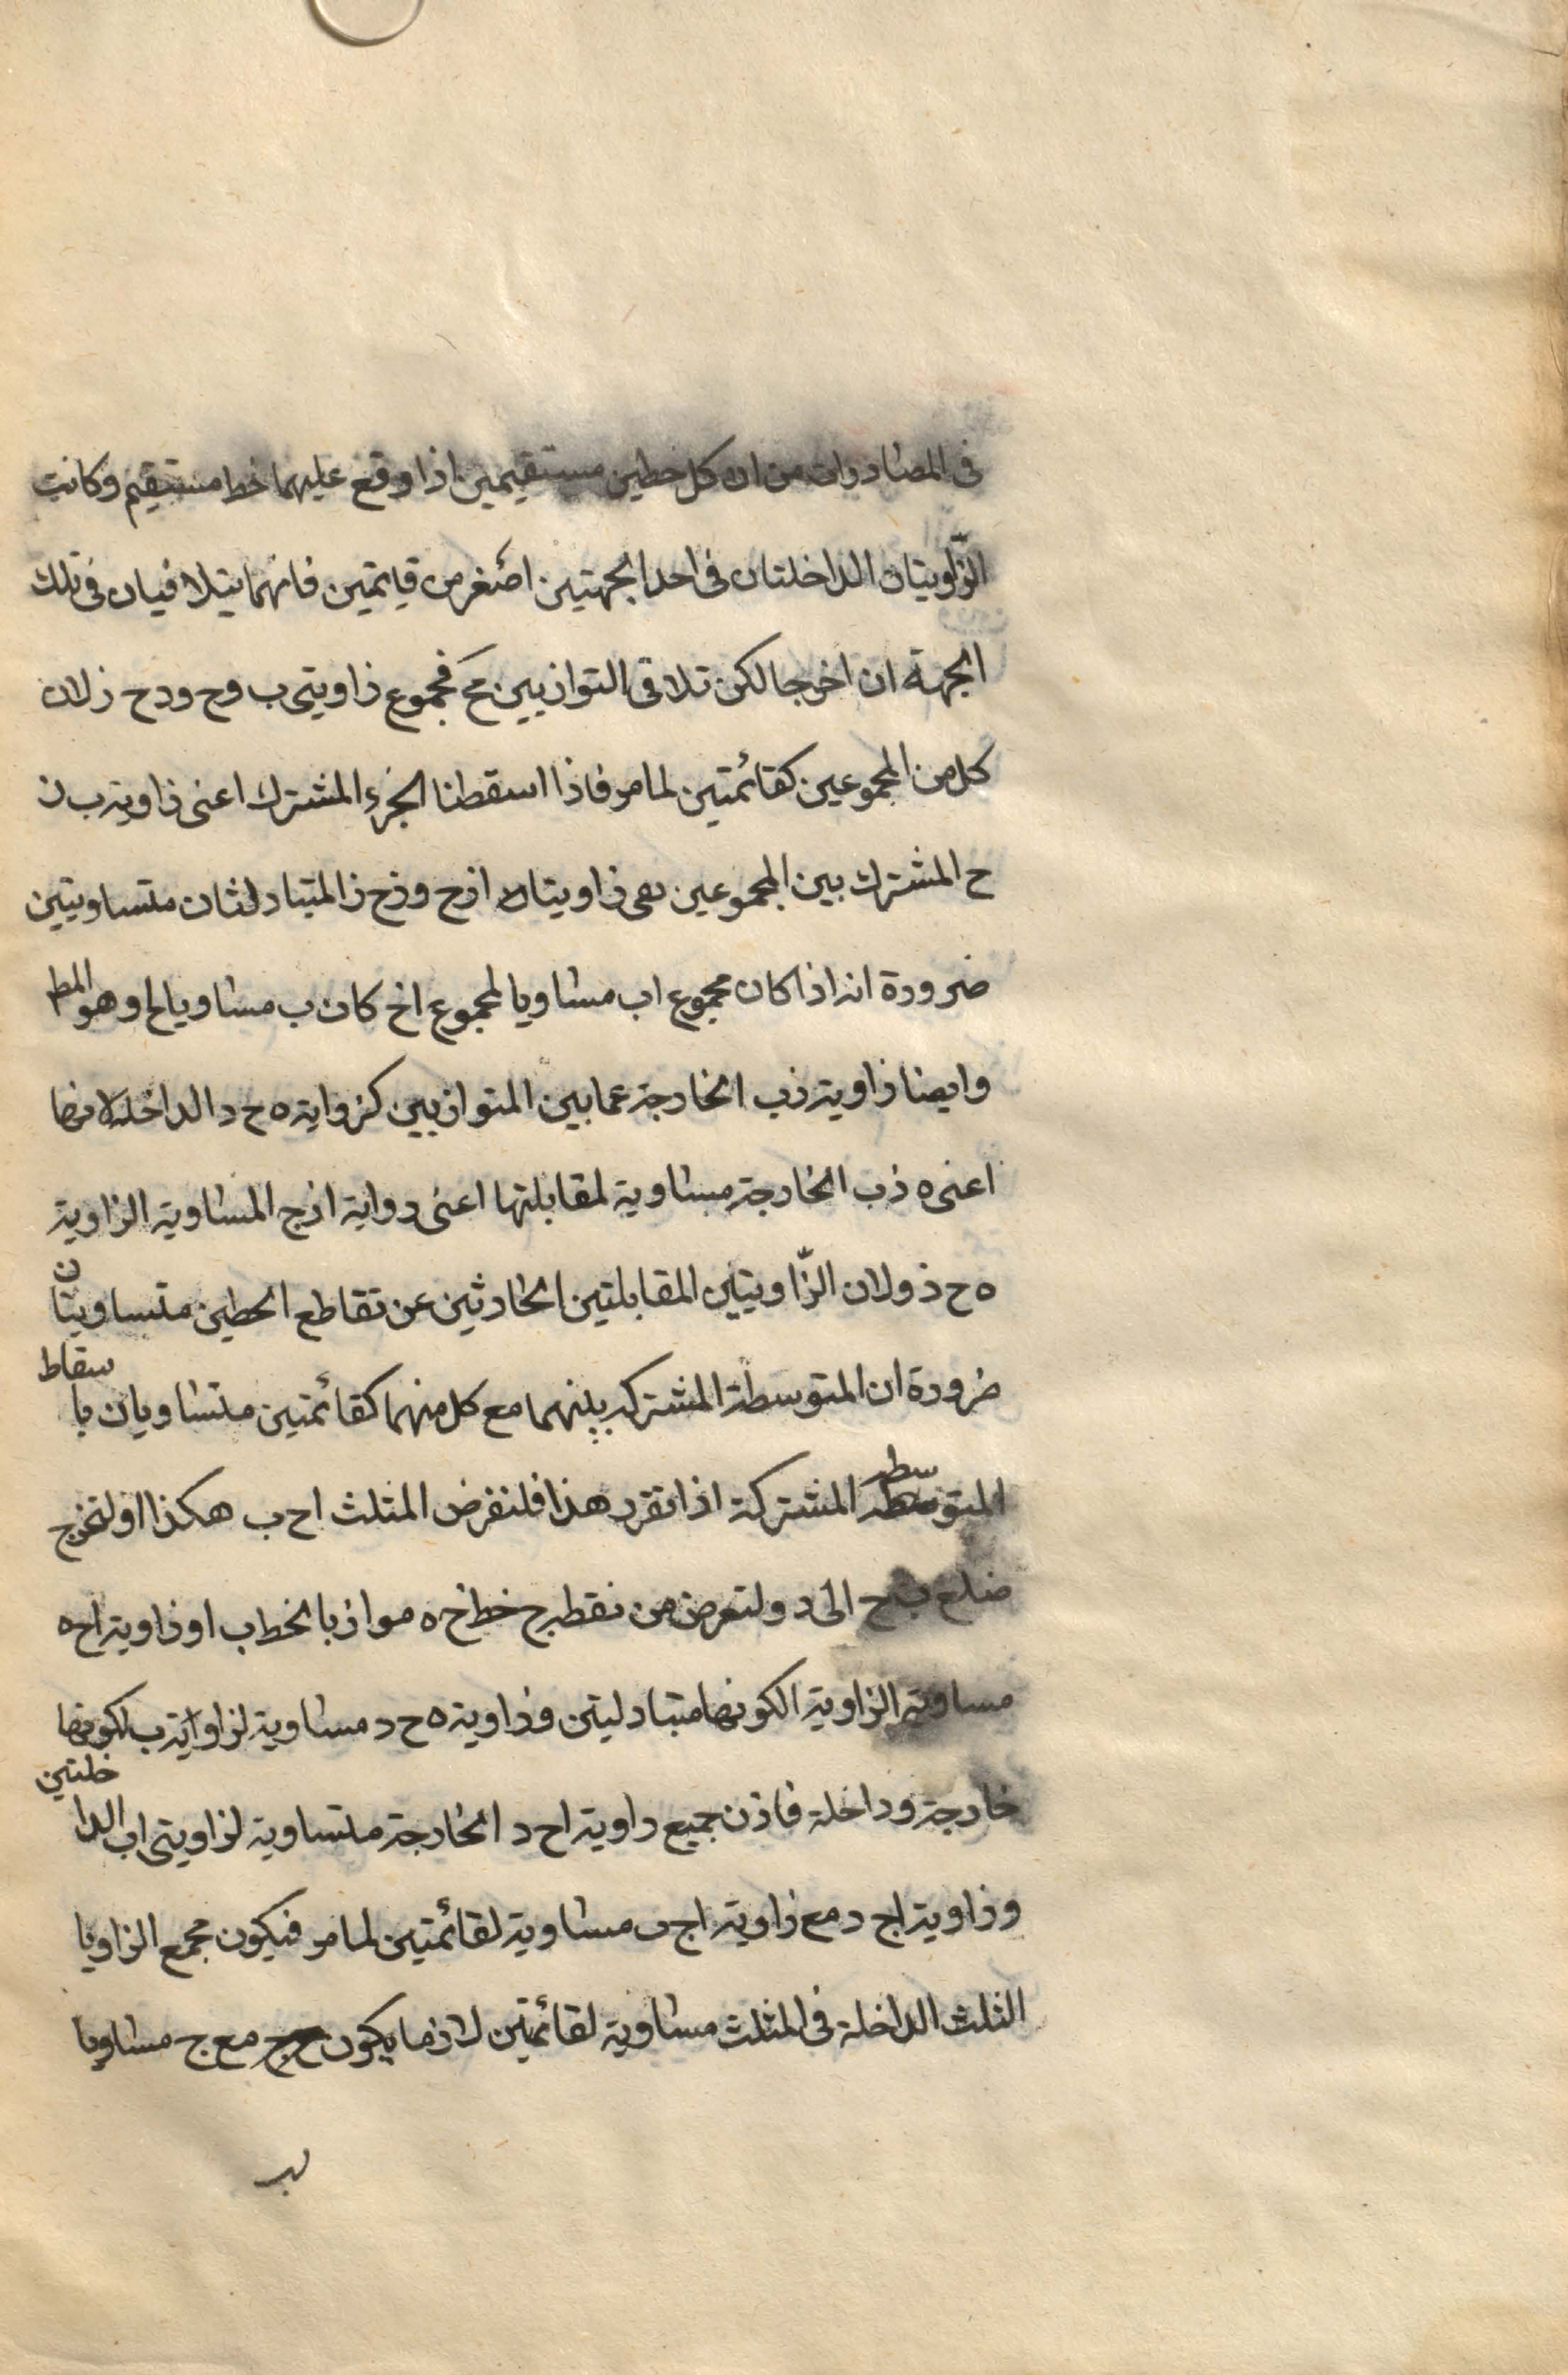 فى المصادرات من ان كل خطين مستقيمين اذا وقع عليهما خط مستقيم وكانت
الزّاويتان الداخلتان فى احد الجهتين اصغر من قايمتين فانهما يتلاقيان فى تلك
الجهة ان اخرجا لكن تلاقى التوازيين مح فمجموع زاويتى ب وح ودح ز لان
كل من المجموعين كقائمتين لما مر فاذا اسقطنا الجزء المشترك اعنى زاوية ب ز
ح المشترك بين المجموعين بقى زاويتان ازح وزح ز المتبادلتان متساويتين
ضرورة انه اذا كان مجموع اب مساويا لمجموع اخ كان ب مساويا لح وهو المط
وايضا زاوية زب الخارجة عما بين المتوازيين كزواية ه ح د الداخلة لانها
اعنى ه زب الخارجة مساوية لمقابلتها اعنى دواية ازج المساوية الزاوية
ه ح ز ولان الزّاويتين المقابلتين الحادثتين عن تقاطع الخطين متساويتان
ضرورة ان المتوسطة المشتركة بينهما مع كل منهما كقائمتين متساويان باسقاط
المتوسطة المشتركة اذا تقرر هذا فلنفرض المثلث اح ب هكذا او لنخرج
ضلع ب ح الى د ولنعرض من نقطة ح خط ح ه موازيا لخط ب ا وزاوية اح ه
مساوية الزاوية الكونها متبادلتين وزاوية ه ح د مساوية لزاواية ب لكونها
خارجة وداخلة فاذن جميع داوية اح د الخارجة متساوية لزاويتى اب الداخلتين
وزاوية اج د مع زاوية اج ب مساوية لقائمتين لما مر فيكون مجمع الزاويا
الثلث الداخلة فى المثلث مساوية لقائمتين لان ما يكون ج مع ج مساويا
لب